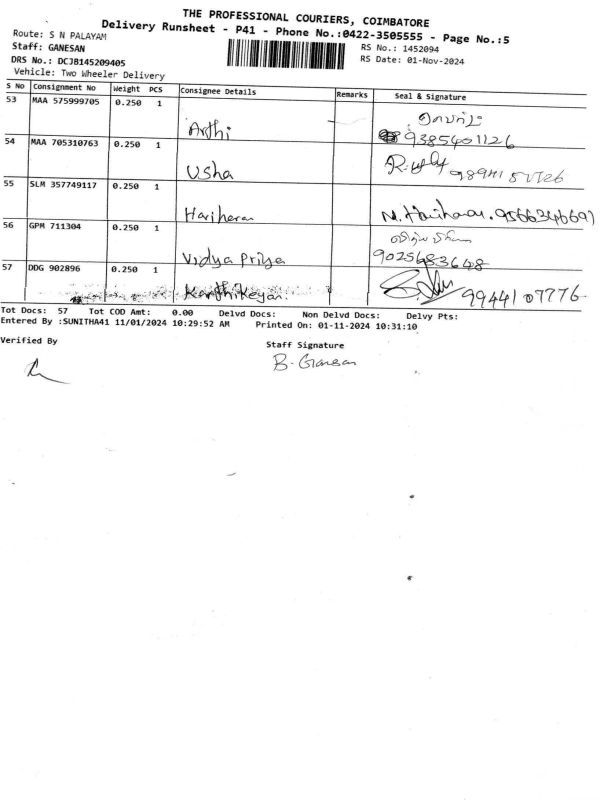 THE PROFESSIONAL COURIERS, COIMBATORE
Delivery Runsheet - P41 - Phone No.:0422-3505555 - Page No.:5
Route: S N PALAYAM
RS No.: 1452094
Staff: GANESAN
RS Date: 01-Nov-2024
DRS No.: DCJB145209405
Vehicle: Two Wheeler Delivery
S No Consignment No Weight PCS Consignee Details Remarks Seal & Signature
53 MAA 575999705 0.250 1
Arthi 9385401126
54 MAA 705310763 0.250 1
Usha
55 SLM 357749117 0.250 1
Hariharan N. Hariharan. 9566346691
56 GPM 711304 0.250 1
Vidya Priya 9025683648
57 DDG 902896 0.250 1
Karthikeyan 9944107776
Tot Docs: 57 Tot COD Amt: 0.00 Delvd Docs: Non Delvd Docs: Delvy Pts:
Entered By :SUNITHA41 11/01/2024 10:29:52 AM Printed On: 01-11-2024 10:31:10
Verified By
Staff Signature
B. Ganesan